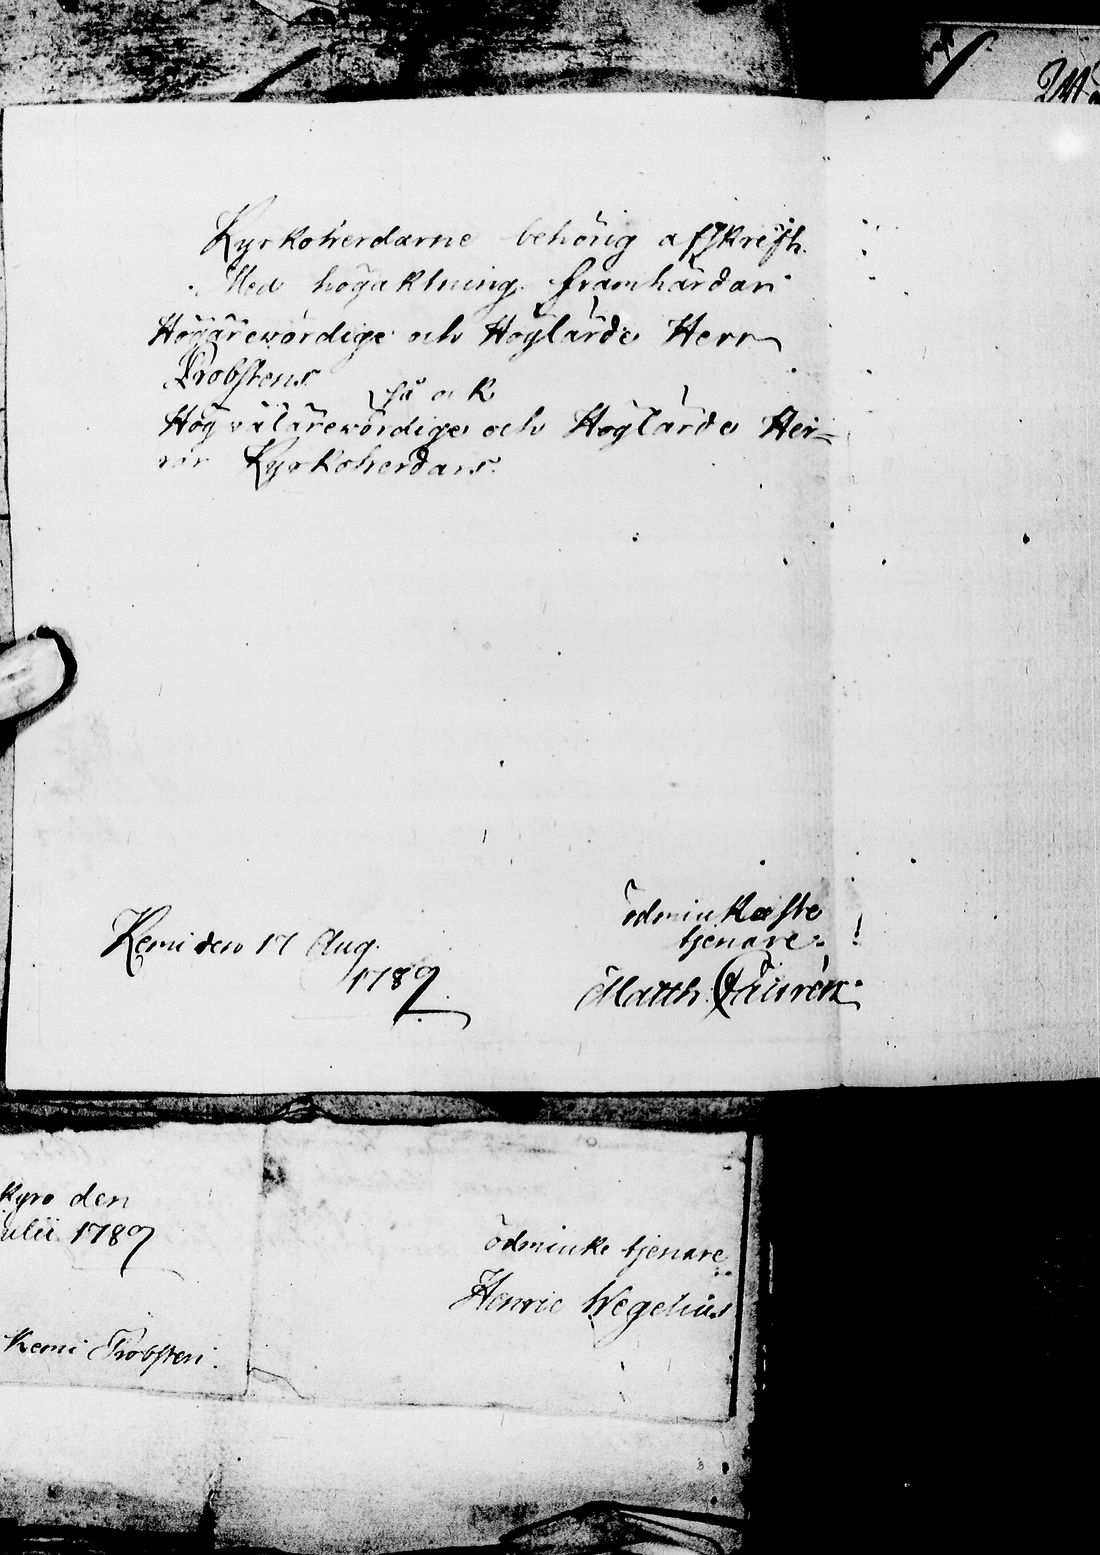 Kyrkoherdarne behörig afskrift.
Med högaktning framhärdar
Högärewördige och Höglärde Herr
Probstens
så ok
Högvälärewördige och Höglärde Her=
rar Kyrkoherdars
ödmiukaste
tjenare
Kemi den 17 Aug.
1789
Matth. Lauren
kyro den
ulii 1789
ödmiuke tjenare
Henric Wegelius
Kemi Probsten.